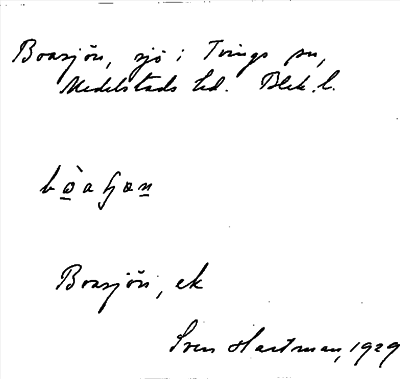 Boasjön, sjö i Tvings sn,
Medelstads hd. Blek. l.
Boasjön, ek
Sven Hartman, 1929